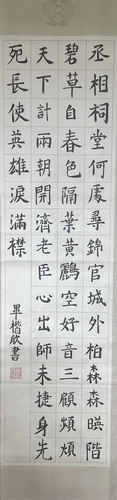 丞相祠堂何處尋錦官城外柏森森暎階
碧草自春色隔葉黃鸝空好音三顧頻煩
天下計兩朝開濟老臣心出師未捷身先
死長使英雄淚滿襟
畢楷欣書